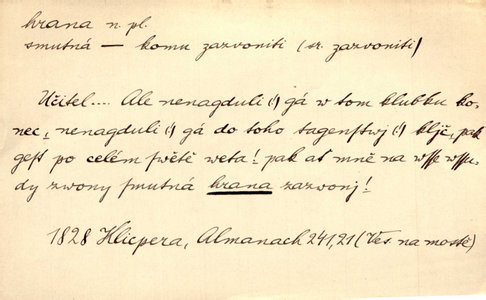 hrana n. pl.
smutná — komu zazvoniti (sr. zazvoniti)
Učitel.... Ale nenagduli (!) gá w tom klubku ko-
nec, nenagduli (!) gá do toho tagenſtwj (!) kljč, pak
geſt po celém ſwětě weta! pak ať mně na wſſe wſſu-
dy zwony ſmutná hrana zazwonj!
1828 Klicpera, Almanach 241,21 (Ves. na mostě)